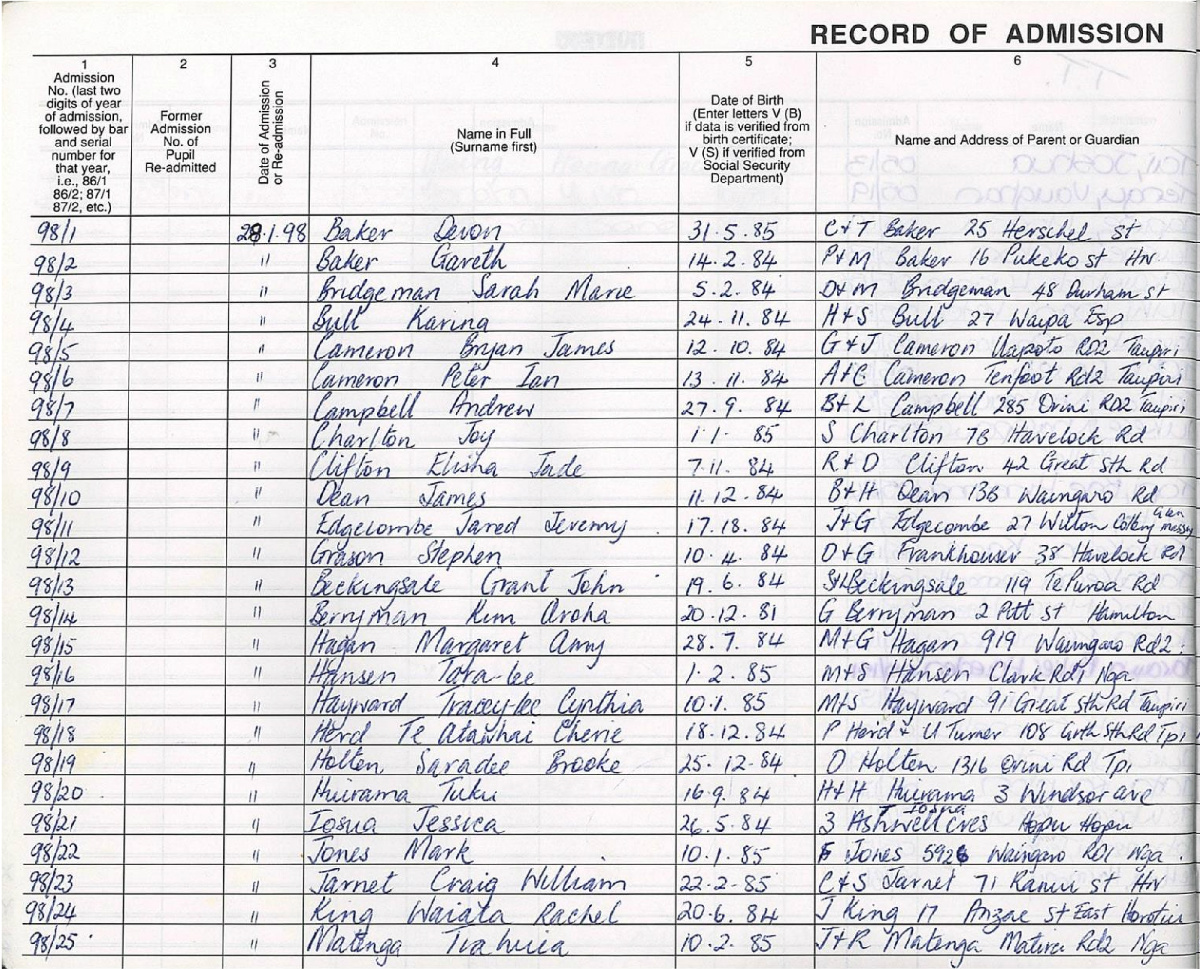 RECORD OF ADMISSION
1 2 3 4 5 6
Admission No. (last two digits of year of admission, followed by bar and serial number for that year, i.e., 86/1 86/2; 87/1 87/2, etc.) Former Admission No. of Pupil Re-admitted Date of Admission or Re-admission Name in Full (Surname first) Date of Birth (Enter letters V (B) if data is verified from birth certificate; V (S) if verified from Social Security Department) Name and Address of Parent or Guardian
98/1 28.1.98 Baker Devon 31.5.85 C+T Baker 25 Herschel st
98/2 " Baker Gareth 14.2.84 P+M Baker 16 Pukeko st Hn
98/3 " Bridgeman Sarah Marie 5.2.84 D+M Bridgeman 48 Durham st
98/4 " Bull Karina 24.11.84 H+S Bull 27 Waipa Esp
98/5 " Cameron Bryan James 12.10.84 G+J Cameron RD2 Taupiri
98/6 " Cameron Peter Ian 13.11.84 A+C Cameron Tenfoot Rd2 Taupiri
98/7 " Campbell Andrew 27.9.84 B+L Campbell 285 Orini RD2 Taupiri
98/8 " Charlton Joy 1.1.85 S Charlton Havelock Rd
98/9 " Clifton Elisha Jade 7.11.84 R+D Clifton 42 Great Sth Rd
98/10 " Dean James 11.12.84 B+H Dean Waingaro Rd
98/11 " Edgecombe Jared Jeremy 17.18.84 J+G Edgecombe 27 Wilton Glen Massey
98/12 " Stephen 10.4.84 D+G Frankhouser 38 Havelock Rd
98/13 " Beckingsale Grant John 19.6.84 Beckingsale 119 Te Puroa Rd
98/14 " Berryman Kim Aroha 20.12.81 G Berryman 2 Pitt st Hamilton
98/15 " Hagan Margaret Amy 28.7.84 M+G Hagan 919 Waingaro Rd2
98/16 " Hansen Tara-lee 1.2.85 M+S Hansen Clark Rd1 Nga
98/17 " Hayward Tracey-lee Cynthia 10.1.85 M+S Hayward 91 Great Sth Rd Taupiri
98/18 " Herd Te Atawhai Cherie 18.12.84 P Herd + U Turner 108 Grth Sth Rd Tpi
98/19 " Holten Saradee Brooke 25.12.84 D Holten 1316 Orini Rd Tpi
98/20 " Huirama Tuku 16.9.84 H+H Huirama 3 Windsor ave
98/21 " Iosua Jessica 26.5.84 Iosua 3 Ashwell cres Hopu Hopu
98/22 " Jones Mark 10.1.85 F Jones 592B Waingaro RD1 Nga
98/23 " Jarnet Craig William 22.2.85 C+S Jarnet 71 Ranui st Hn
98/24 " King Waiata Rachel 20.6.84 J King 17 Anzac st East Horotiu
98/25 " Matenga 10.2.85 J+R Matenga Matira Rd2 Nga